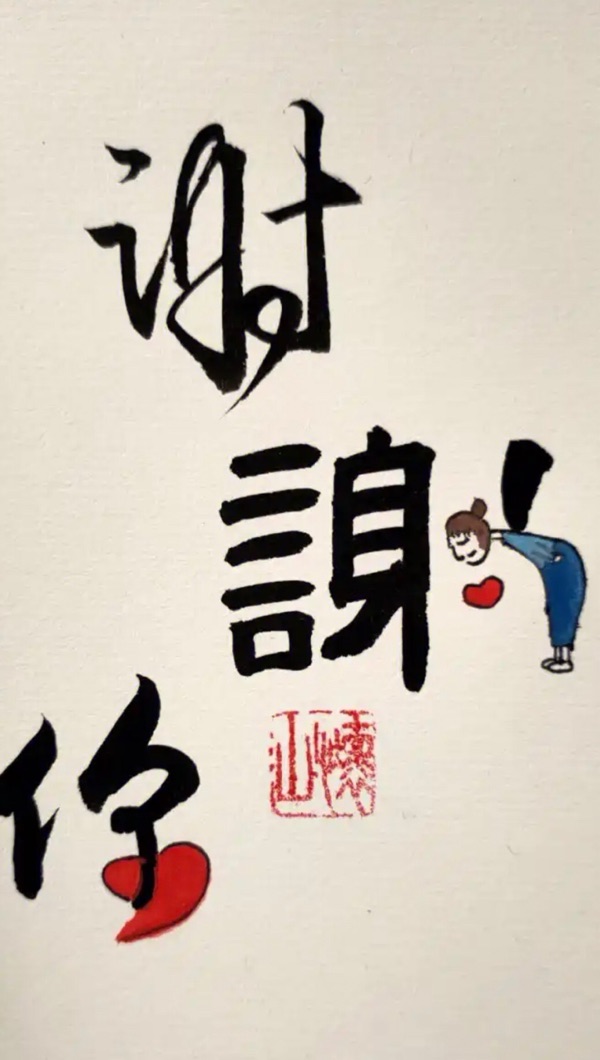 谢
謝
你
懷山